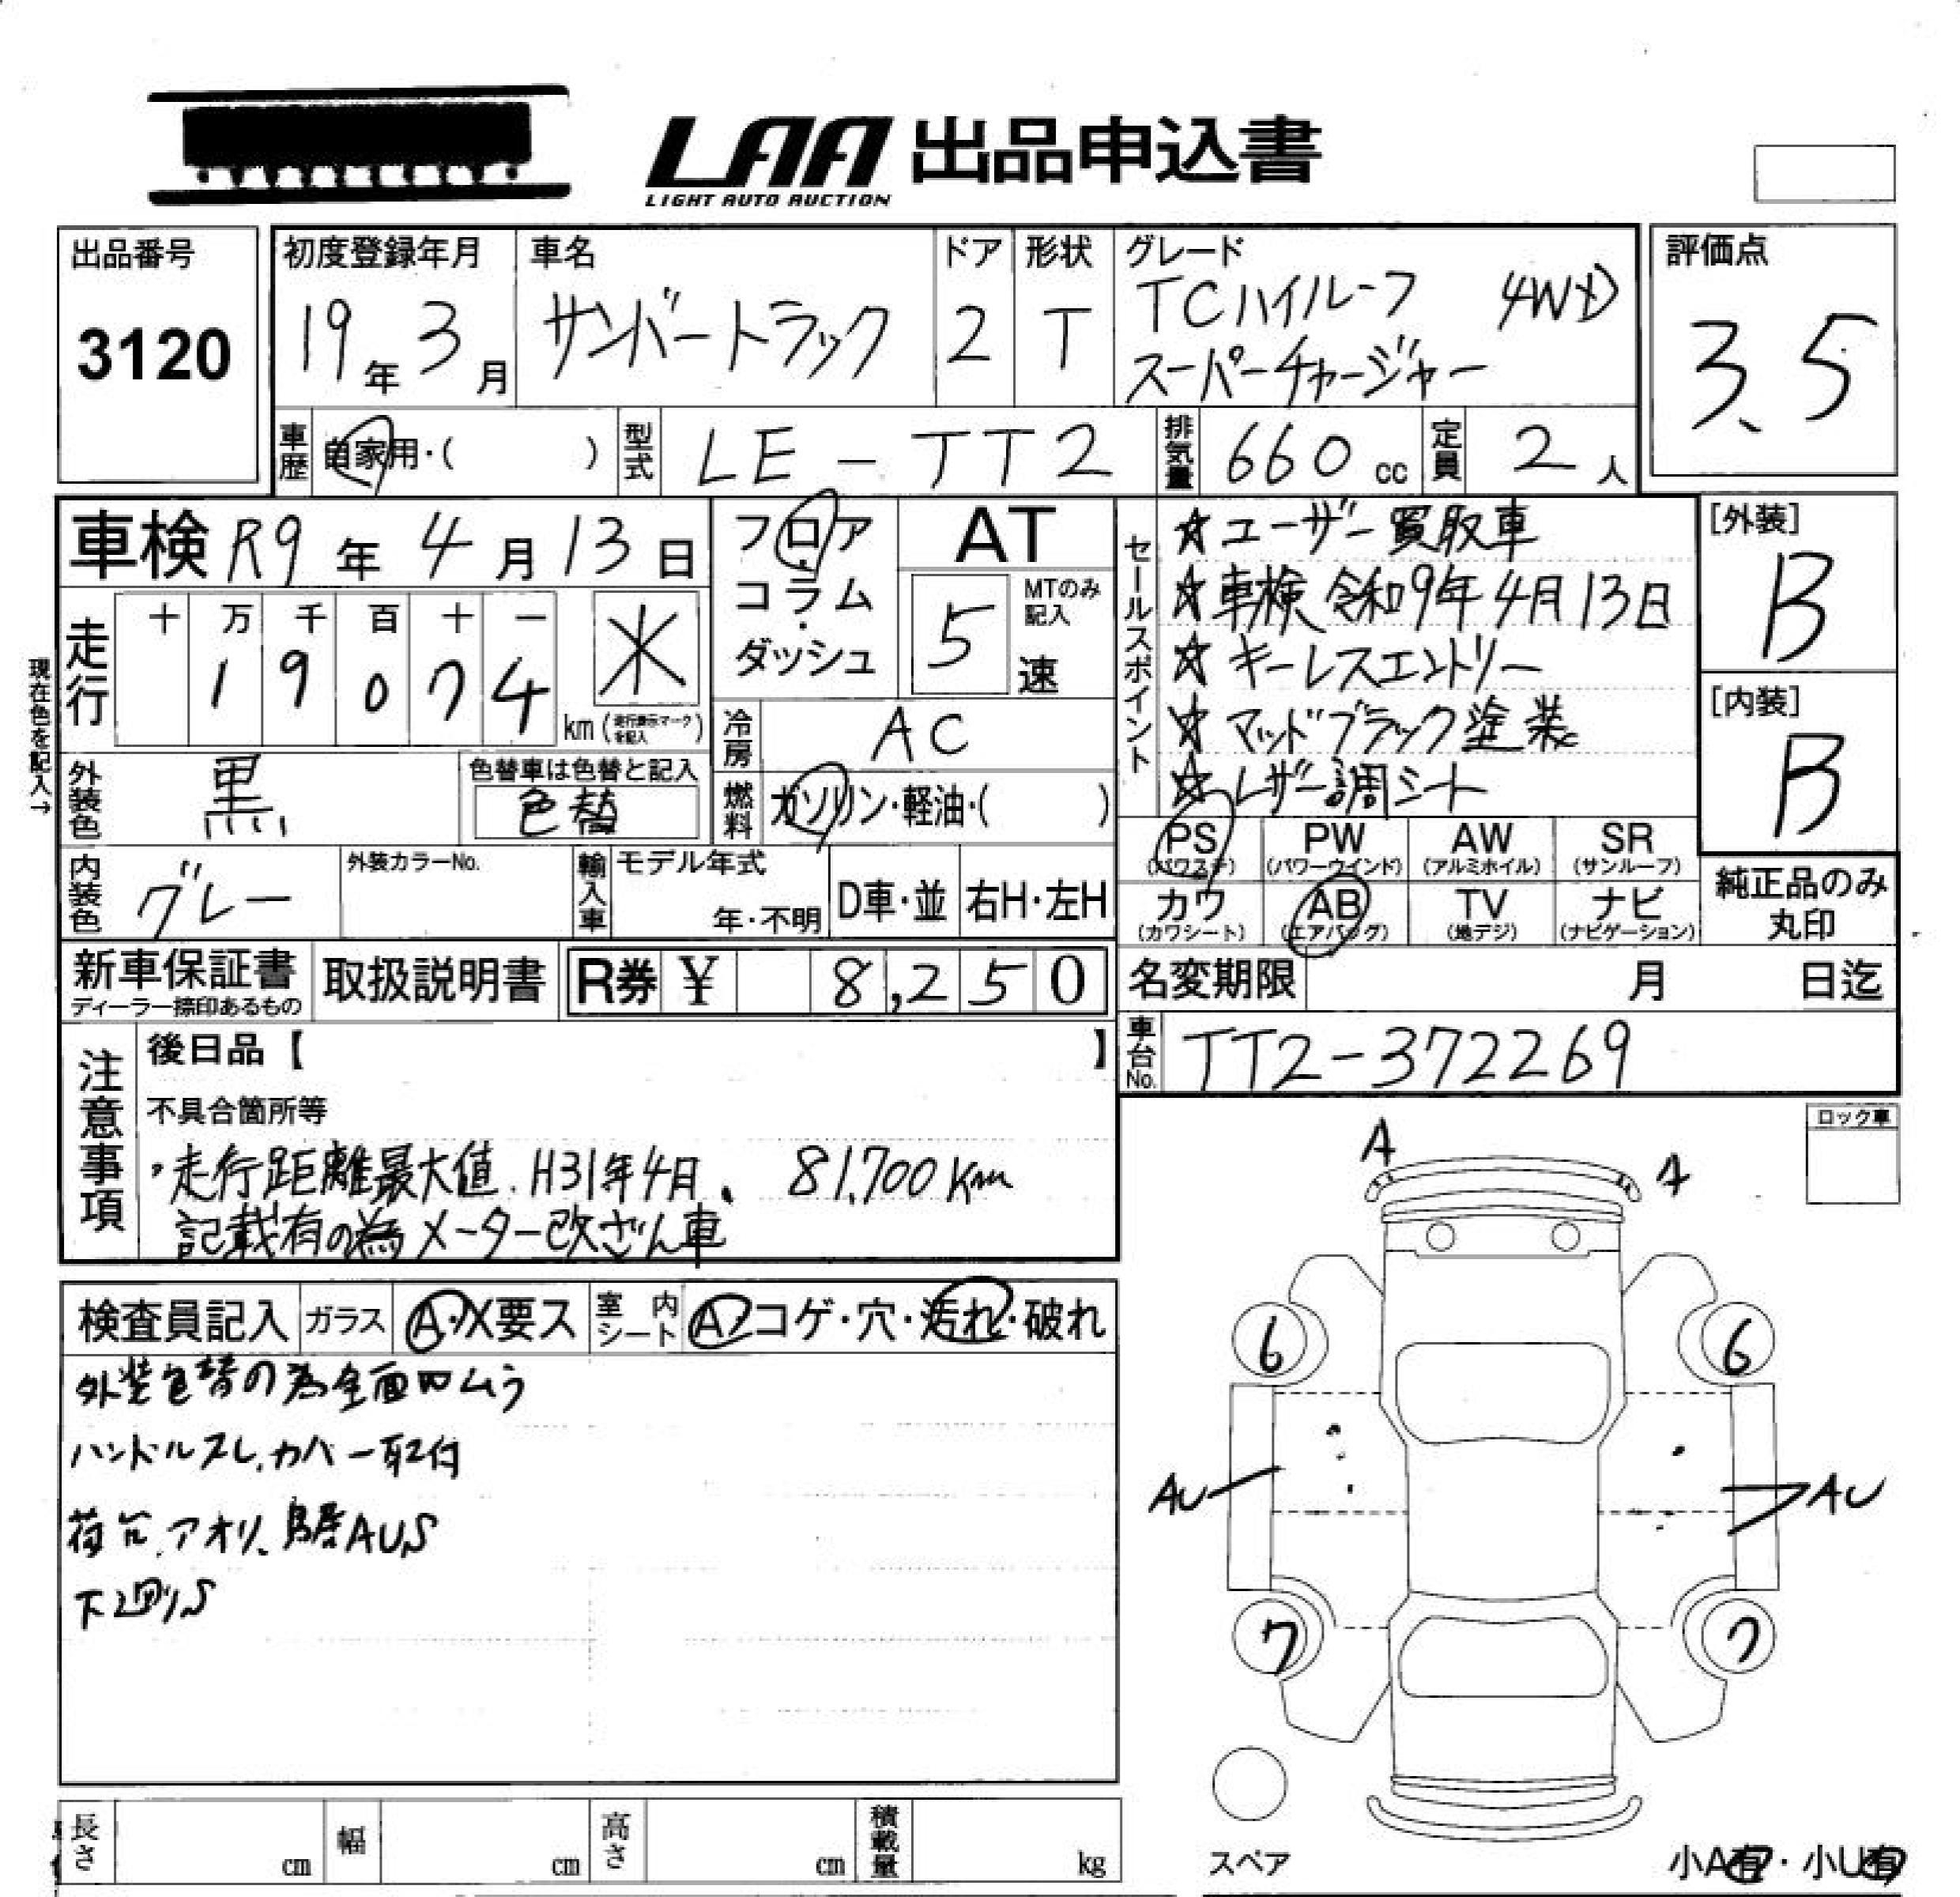 LAA 出品申込書
LIGHT AUTO AUCTION
出品番号
3120
初度登録年月
19年 3月
車名
サンバートラック
ドア
2
形状
T
グレード
TCハイルーフ 4WD
スーパーチャージャー
評価点
3.5
車歴
自家用・( )
型式
LE-TT2
排気量
660 cc
定員
2 人
車検 R9年 4月 13日
走行
十 万 千 百 十 一
1 9 0 7 4
km(走行表示マークを記入)
現在色を記入→
外装色
黒
色替車は色替と記入
色替
フロア・コラム・ダッシュ
AT
5
MTのみ記入
速
冷房
AC
燃料
ガソリン・軽油・( )
セールスポイント
☆ユーザー買取車
☆車検 令和9年4月13日
☆キーレスエントリー
☆マッドブラック塗装
☆レザー調シート
[外装]
B
[内装]
B
PS (パワステ)
PW (パワーウインド)
AW (アルミホイル)
SR (サンルーフ)
カワ (カワシート)
AB (エアバッグ)
TV (地デジ)
ナビ (ナビゲーション)
純正品のみ丸印
内装色
グレー
外装カラーNo.
輸入車
モデル年式
年・不明
D車・並
右H・左H
新車保証書
ディーラー捺印あるもの
取扱説明書
R券 ¥ 8,250
名変期限 月 日迄
車台No.
TT2-372269
注意事項
後日品【 】
不具合箇所等
・走行距離最大値、H31年4月、81,700Km
記載有の為メーター改ざん車
ロック車
検査員記入
ガラス
A・X要ス
室内シート
A・コゲ・穴・汚れ・破れ
外装色替の為全面凹ムラ
ハンドルスレ、カバー取付
荷台、アオリ、鳥居AUS
下廻りS
A
A
6
6
AU
AU
7
7
スペア
小A有・小U有
長さ cm
幅 cm
高さ cm
積載量 kg